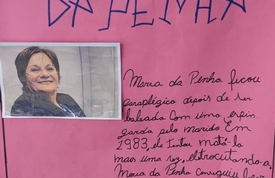 DA PENHA
Maria da Penha ficou
paraplégica depois de ser
baleada com uma espin
garda pelo marido Em
1983, ele tentou matá-la
mais uma vez, eletrocutando-a.
Maria da Penha conseguiu